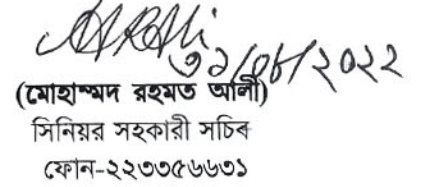 ৩১/০৮/২০২২
(মোহাম্মদ রহমত আলী)
সিনিয়র সহকারী সচিব
ফোন-২২৩৩৫৬৬৩১